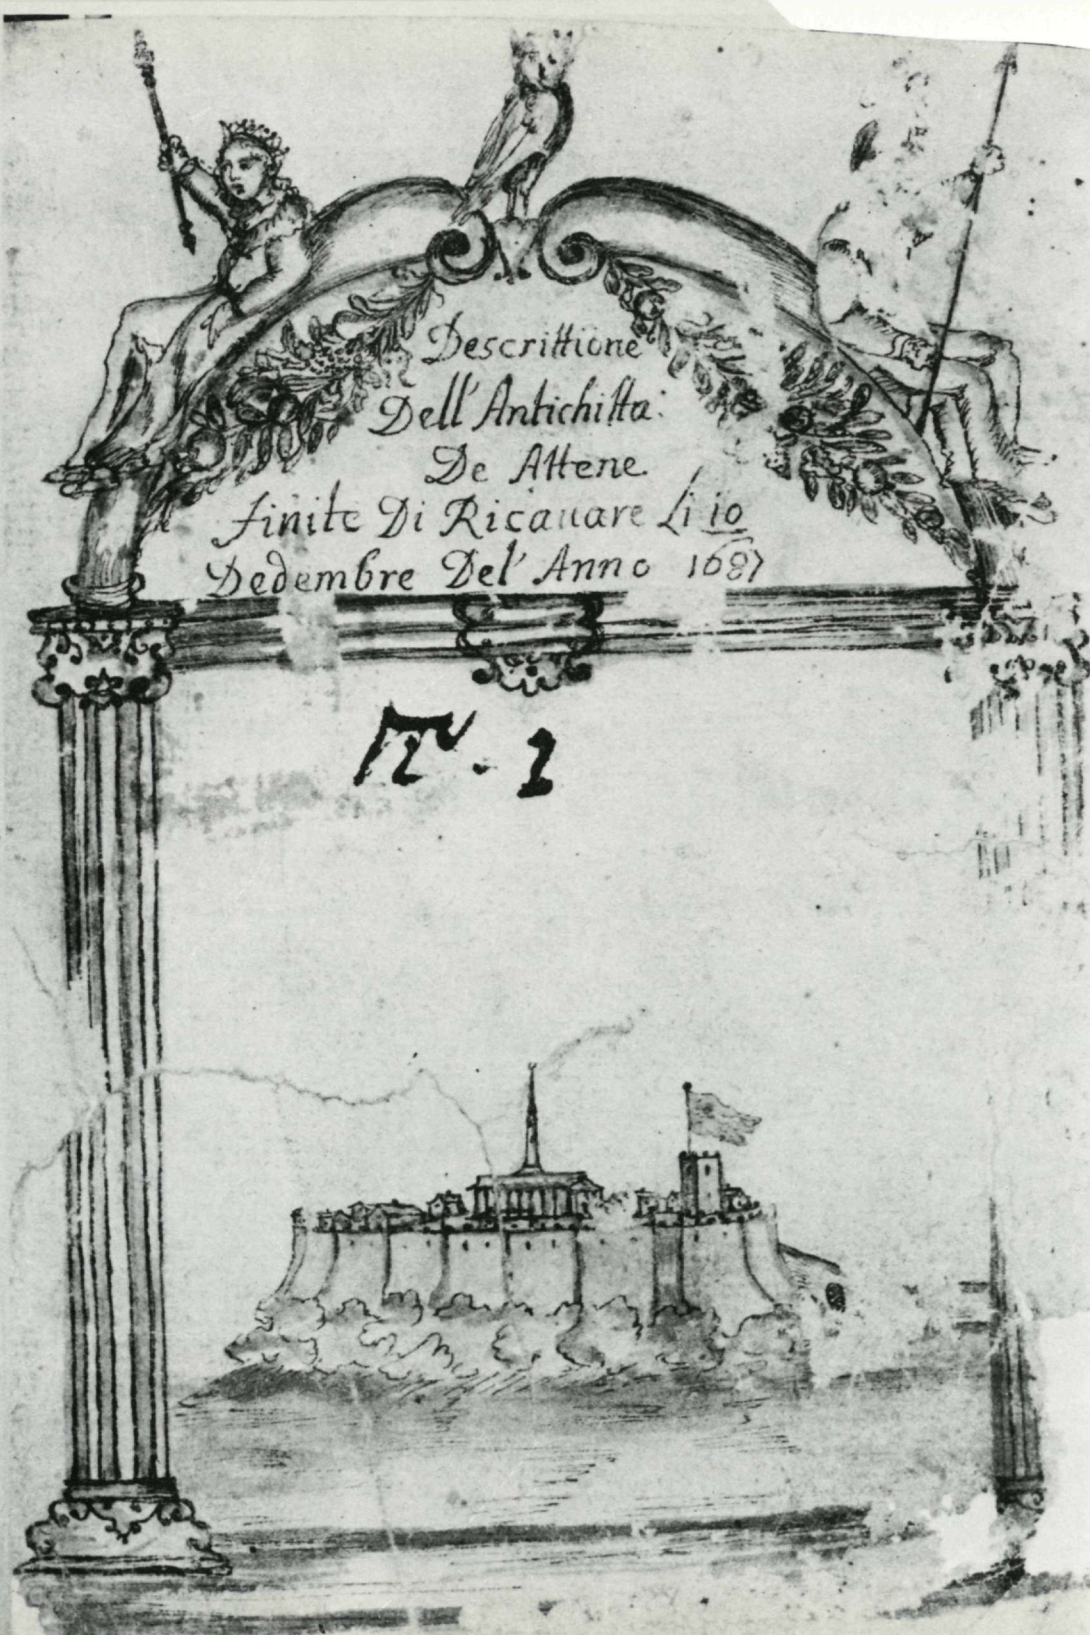 Descrittione
Dell' Antichitta:
De Attene
finite Di Ricauare Li 10
Dedembre Del' Anno 1687